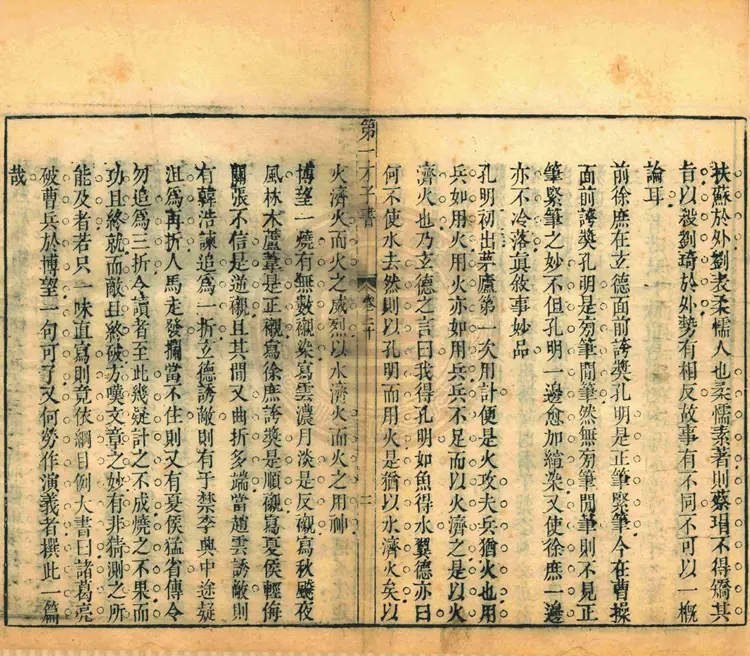 扶蘇於外劉表柔懦人也柔懦素著則蔡瑁不得矯其
旨以殺劉琦於外勢有相反故事有不同不可以一概
論耳
前徐庶在玄德面前誇獎孔明是正筆緊筆今在曹操
面前誇獎孔明是旁筆閒筆然無旁筆閒筆則不見正
筆緊筆之妙不但孔明一邊愈加縇染又使徐庶一邊
亦不冷落眞敘事妙品
孔明初出茅廬第一次用計便是火攻夫兵猶火也用
兵如用火用火亦如用兵兵不足而以火濟之是以火
濟火也乃玄德之言曰我得孔明如魚得水翼德亦曰
何不使水去然則以孔明而用火是猶以水濟火矣以
第一才子書 卷二十 二
火濟火而火之威烈以水濟火而火之用神
博望一燒有無數襯染寫雲濃月淡是反襯寫秋飈夜
風林木蘆葦是正襯寫徐庶誇獎是順襯寫夏侯輕侮
關張不信是逆襯且其間又曲折多端當趙雲誘敵則
有韓浩諫追爲一折玄德誘敵則有于禁李典中途疑
沮爲再折人馬走發攔當不住則又有夏侯猛省傳令
勿追爲三折令讀者至此幾疑計之不成燒之不果而
功且終就而敵且終破方嘆文章之妙有非猜測之所
能及者若只一味直寫則竟依綱目例大書曰諸葛亮
破曹兵於博望一句可了又何勞作演義者撰此一篇
哉